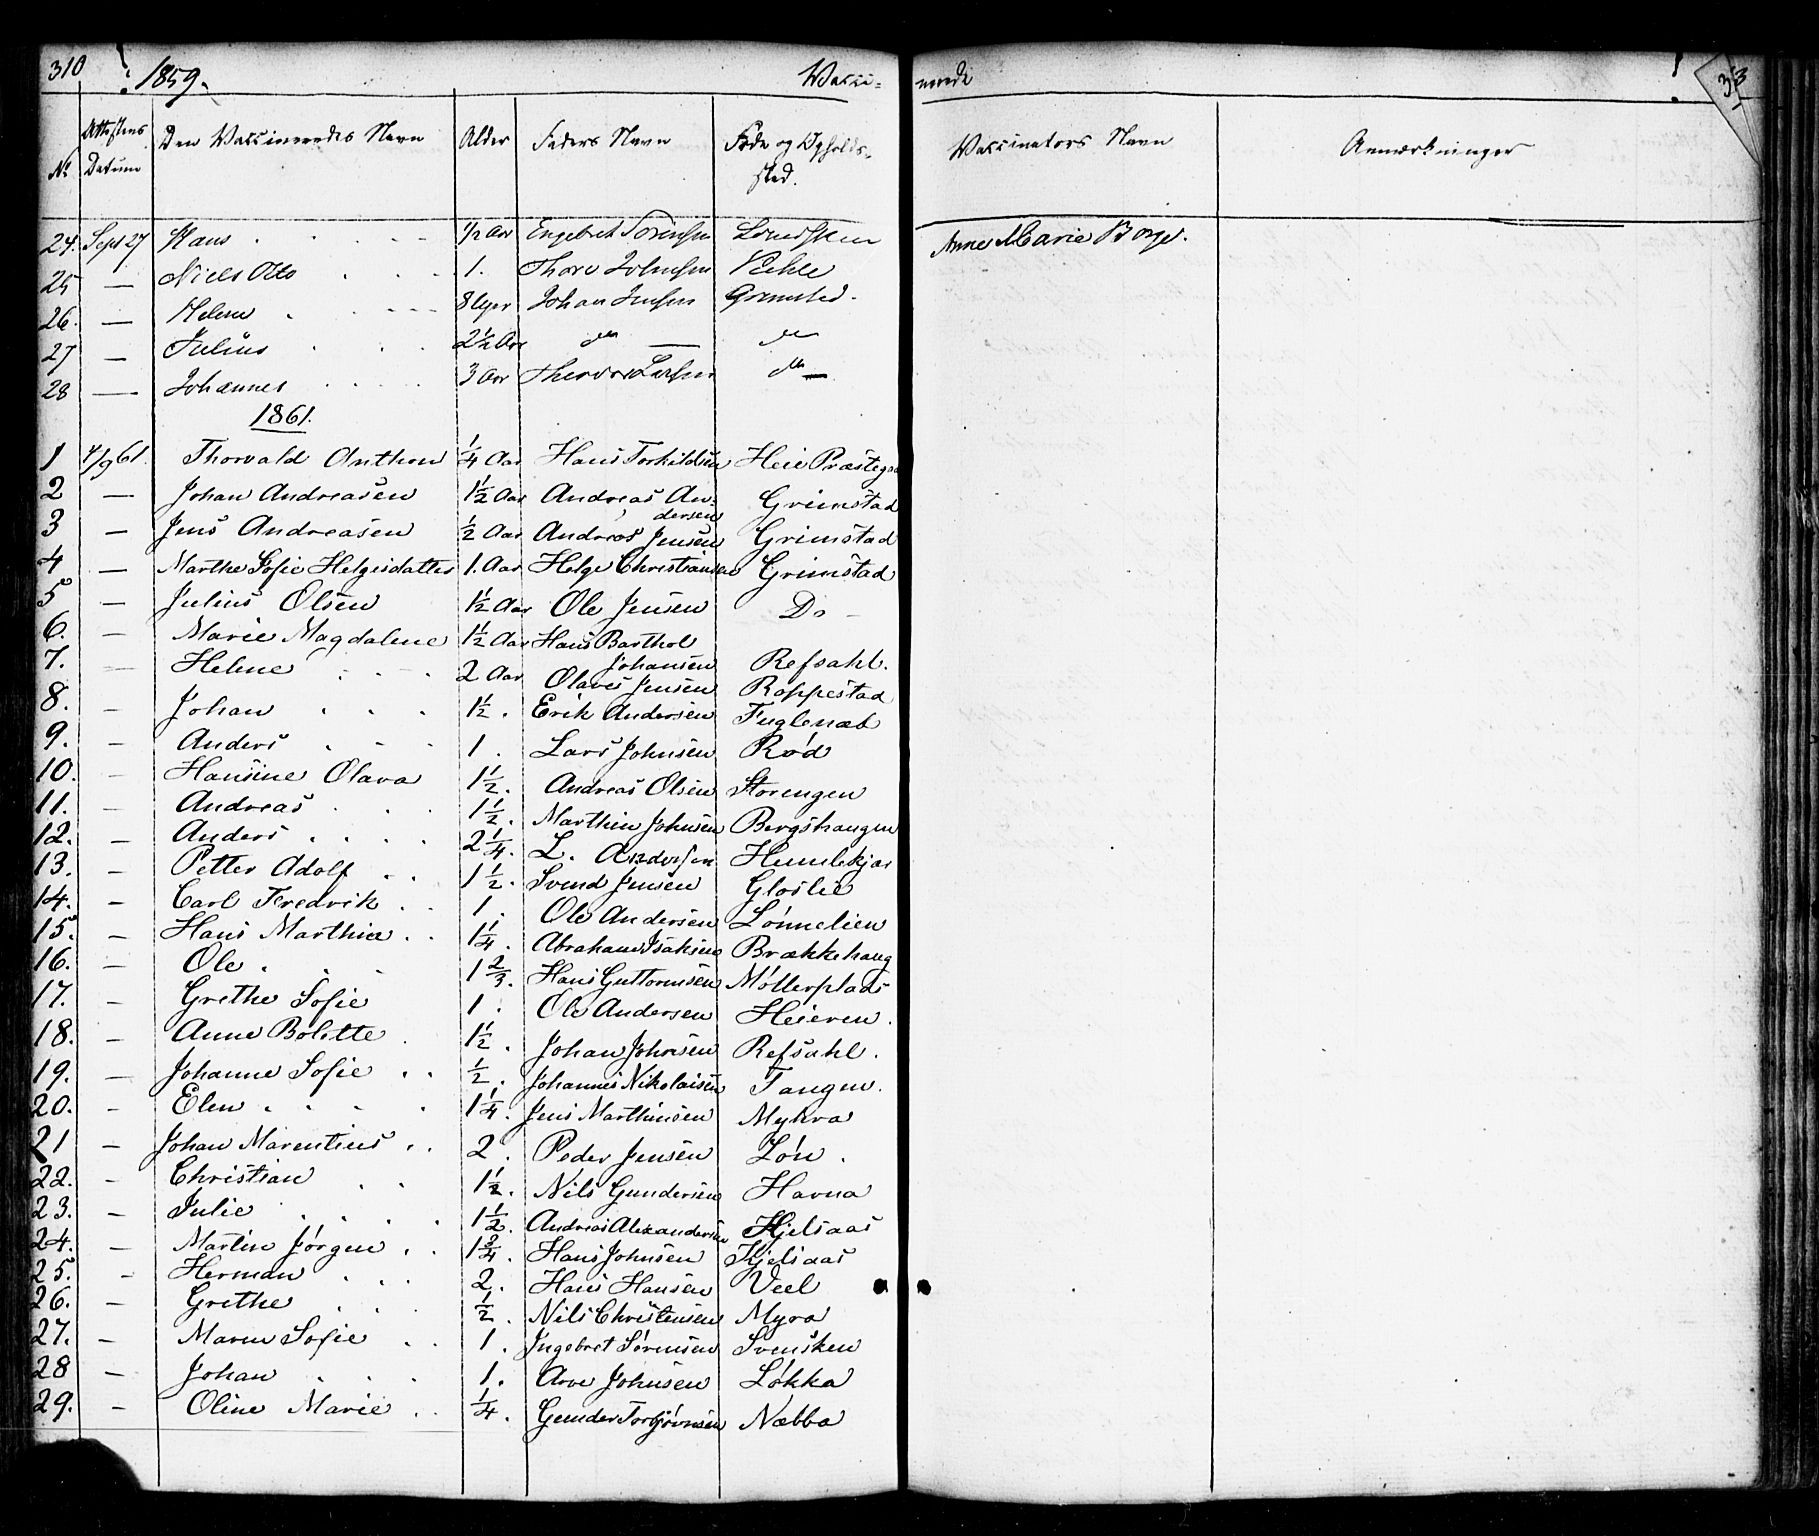 310 1859. Vacci-
No Attestens Datum Den Vaccineredes Navn Alder Faders Navn Føde og Opholds-
sted.
24. Sept 27 Hans 1/2 Aar Engebret Sørensen
25 — Niels Otto 1. Thore Johnsen
26. — Helene 8 Uger Johan Jensen Grimsted.
27 — Julius 2 1/2 Aar do — do
28 — Johannes 3 Aar Larsen do —
1861.
1 4/9 61. Thorvald Anthon 1/4 Aar Hans Torkildsen Heie Præstega
2 — Johan Andreasen 1 1/2 Aar Andreas An-
dersen Grimstad
3 — Jens Andreasen 1/2 Aar Andreas Jensen Grimstad
4 — Marthe Sofie Helgesdatter 1. Aar Helge Christiansen Grimstad
5 — Julius Olsen 1 1/2 Aar Ole Jensen Do -
6. — Marie Magdalene 1 1/2 Aar Hans Barthol
Johansen Refsahl.
7. — Helene 2 Aar Olaves Jensen Roppestad
8. — Johan 1 1/2. Erik Andersen Fugleneb
9. — Anders 1. Lars Johnsen Rød
10. — Hansine Olava 1 1/2. Andreas Olsen Storengen
11. — Andreas 1 1/2. Marthin Johnsen Bergshaugen
12. — Anders 2 1/4. L. Andersen Humlekjær
13. — Petter Adolf 1 1/2. Svend Jensen Gloslie
14. — Carl Fredrik 1. Ole Andersen Lønnelien
15. — Hans Marthin 1 1/4. Abraham Isaksen Brækkehaug
16. — Ole 1 2/3. Hans Guttormsen Møllerplads
17. — Grethe Sofie 1. Ole Andersen Heieren.
18. — Anne Bolette 1 1/2. Johan Johnsen Refsahl.
19. — Johanne Sofie 1/2. Johannes Nikolaisen Tangen.
20. — Elen 1 1/4. Jens Marthinsen Myhra
21 — Johan Marentius 2. Peder Jensen Løn.
22. — Christian 1 1/2. Nils Gundersen Havna
23. — Julie 1 1/2. Andreas Alexandersen Kjelsaas
24. — Martin Jørgen 1 3/4. Hans Johnsen Kjelsaas
25. — Herman 2. Hans Hansen Veel
26. — Grethe 1/2. Nils Christensen Myra
27. — Maren Sofie 1. Ingebret Sørensen Svensken
28 — Johan 1. Arve Johnsen Løkka
29. — Oline Marie 1/4. Gunder Torbjørnsen Næbba
nerede 313
Vaccinators Navn Anmærkninger
Anne Marie Borge.